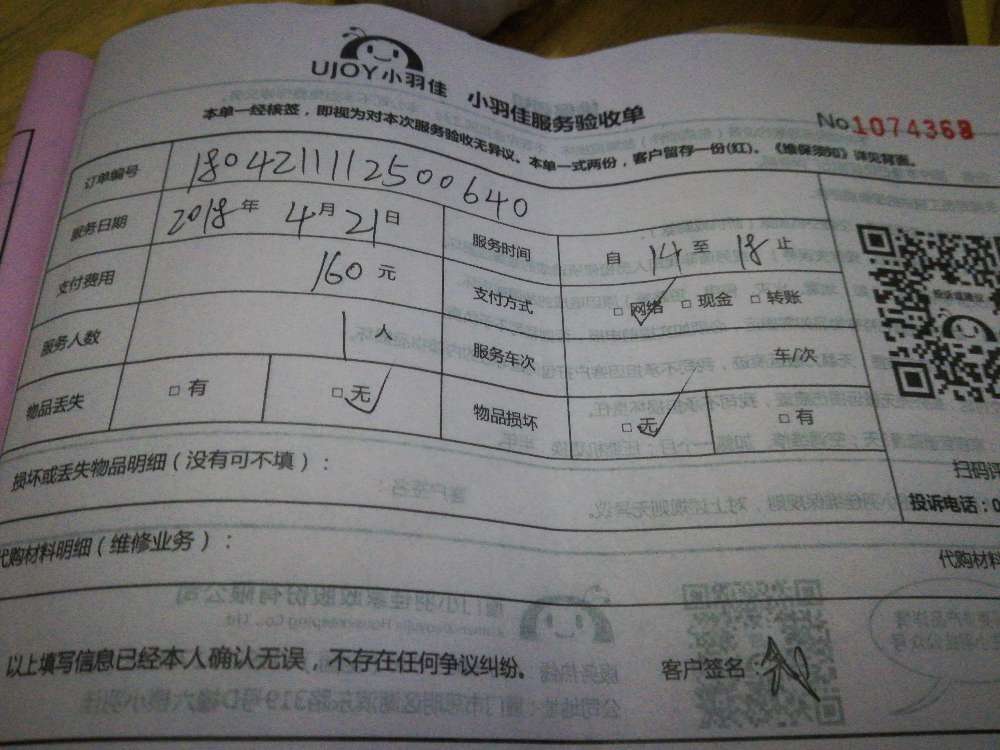 UJOY小羽佳 小羽佳服务验收单
No 1074368
本单一经核签，即视为对本次服务验收无异议。本单一式两份，客户留存一份(红)。《维保须知》详见背面。
订单编号 1804211112500640
服务日期 2018年 4月21日 服务时间 自 14 至 18 止
支付费用 160元 支付方式 □网络 □现金 □转账
服务人数 1人 服务车次 车/次
物品丢失 □有 □无 物品损坏 □无 □有
损坏或丢失物品明细（没有可不填）：
扫码
投诉电话：0
代购材料明细（维修业务）：
代购材料
以上填写信息已经本人确认无误，不存在任何争议纠纷。 客户签名：